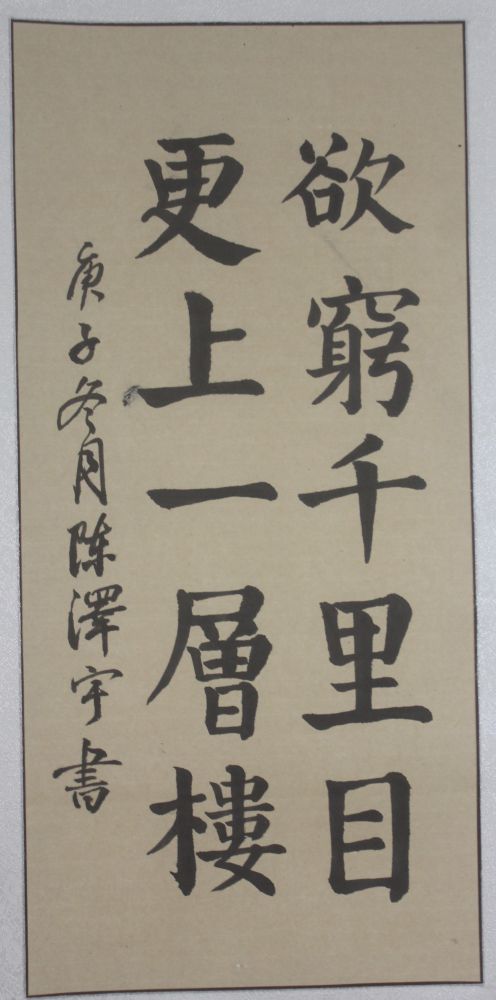 欲窮千里目
更上一層樓
庚子冬月陈澤宇書